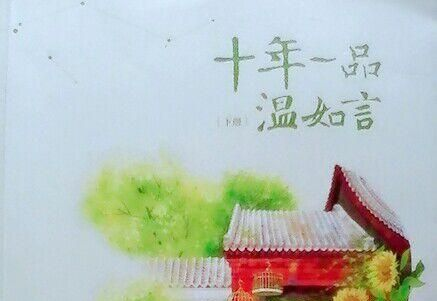 十年一品
温如言
［下册］